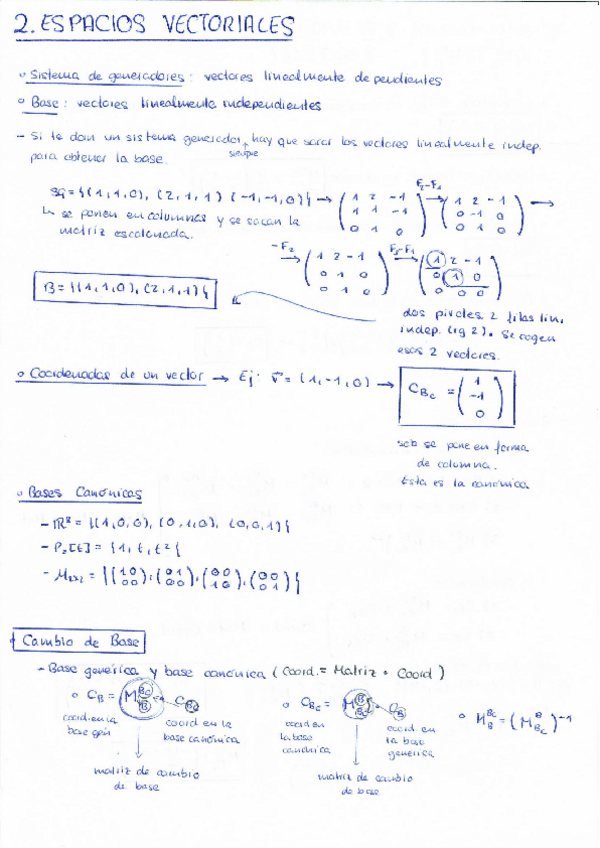 2. ESPACIOS VECTORIALES
o Sistema de generadores: vectores linealmente dependientes
o Base: vectores linealmente independientes
- Si te dan un sistema generador, hay que sacar los vectores linealmente indep.
siempre
para obtener la base.
Sg = {(1,1,0), (2,1,1) (-1,-1,0)} → (1 2 -1 / 1 1 -1 / 0 1 0) F2-F1 → (1 2 -1 / 0 -1 0 / 0 1 0) →
↳ se ponen en columnas y se sacan la
matriz escalonada.
-F2 → (1 2 -1 / 0 1 0 / 0 1 0) F3-F1 → (1 2 -1 / 0 1 0 / 0 0 0)
B = {(1,1,0), (2,1,1)}
dos pivotes. 2 filas lin.
indep. (rg 2). Se cogen
esos 2 vectores.
o Coordenadas de un vector → Ej: v⃗ = (1,-1,0) → C_Bc = (1 / -1 / 0)
solo se pone en forma
de columna.
Esta es la canónica
o Bases Canónicas
- ℝ³ = {(1,0,0), (0,1,0), (0,0,1)}
- P₂[t] = {1, t, t²}
- M₂ₓ₂ = {(1 0 / 0 0), (0 1 / 0 0), (0 0 / 1 0), (0 0 / 0 1)}
Cambio de Base
- Base genérica y base canónica (Coord. = Matriz · Coord)
o C_B = M_B^Bc · C_Bc
coord en la base gen
coord en la base canónica
matriz de cambio
de base
o C_Bc = M_Bc^B · C_B
coord en la base canónica
coord. en la base genérica
matriz de cambio
de base
o M_B^Bc = (M_Bc^B)⁻¹